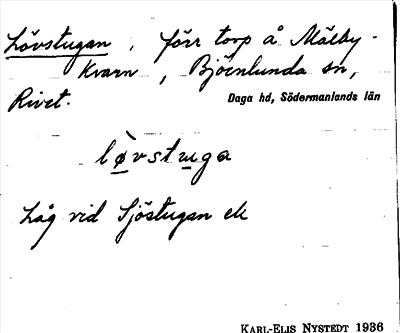 Lövstugan, förr torp å Mälby-
kvarn, Björnlunda sn,
Rivet.
Daga hd, Södermanlands län
lø̀vstuga
Låg vid Sjöstugan
KARL-ELIS NYSTEDT 1936